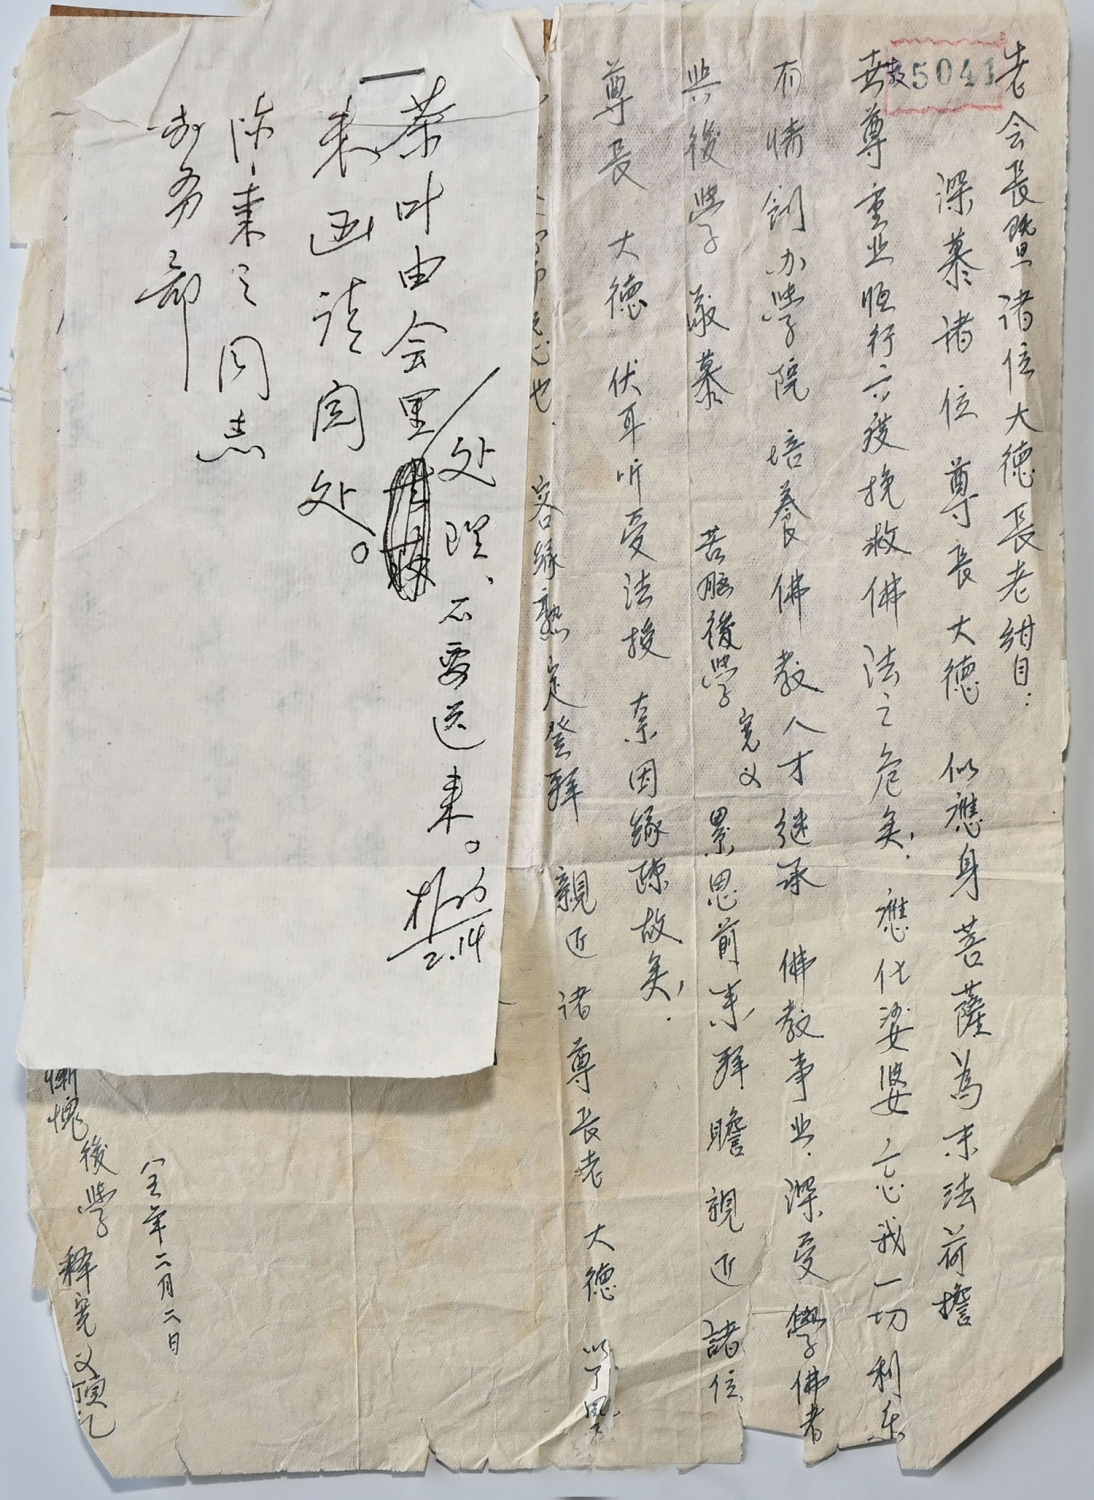 老会長暨諸位大德長老紺目：
教5041
深慕诸位尊長大德 似應身菩薩為末法荷擔
世尊重业恆行六度挽救佛法之危矣，應化娑婆忘我一切利乐
有情創办學院 培養佛教人才继承 佛教事业，深受學佛者
與後學 敬慕 苦腦後學 寬义 累思前来拜瞻 親近諸位
尊長 大德 伏耳听受法授 奈因緣障故矣，
容緣熟定登拜 親近诸尊長老 大德 以了
全年二月二日
慚愧後學 释寬义頂礼
茶叶由会里处理、不要送来。
来函请阅处。
陈秉之同志
教务部
朴 2.14